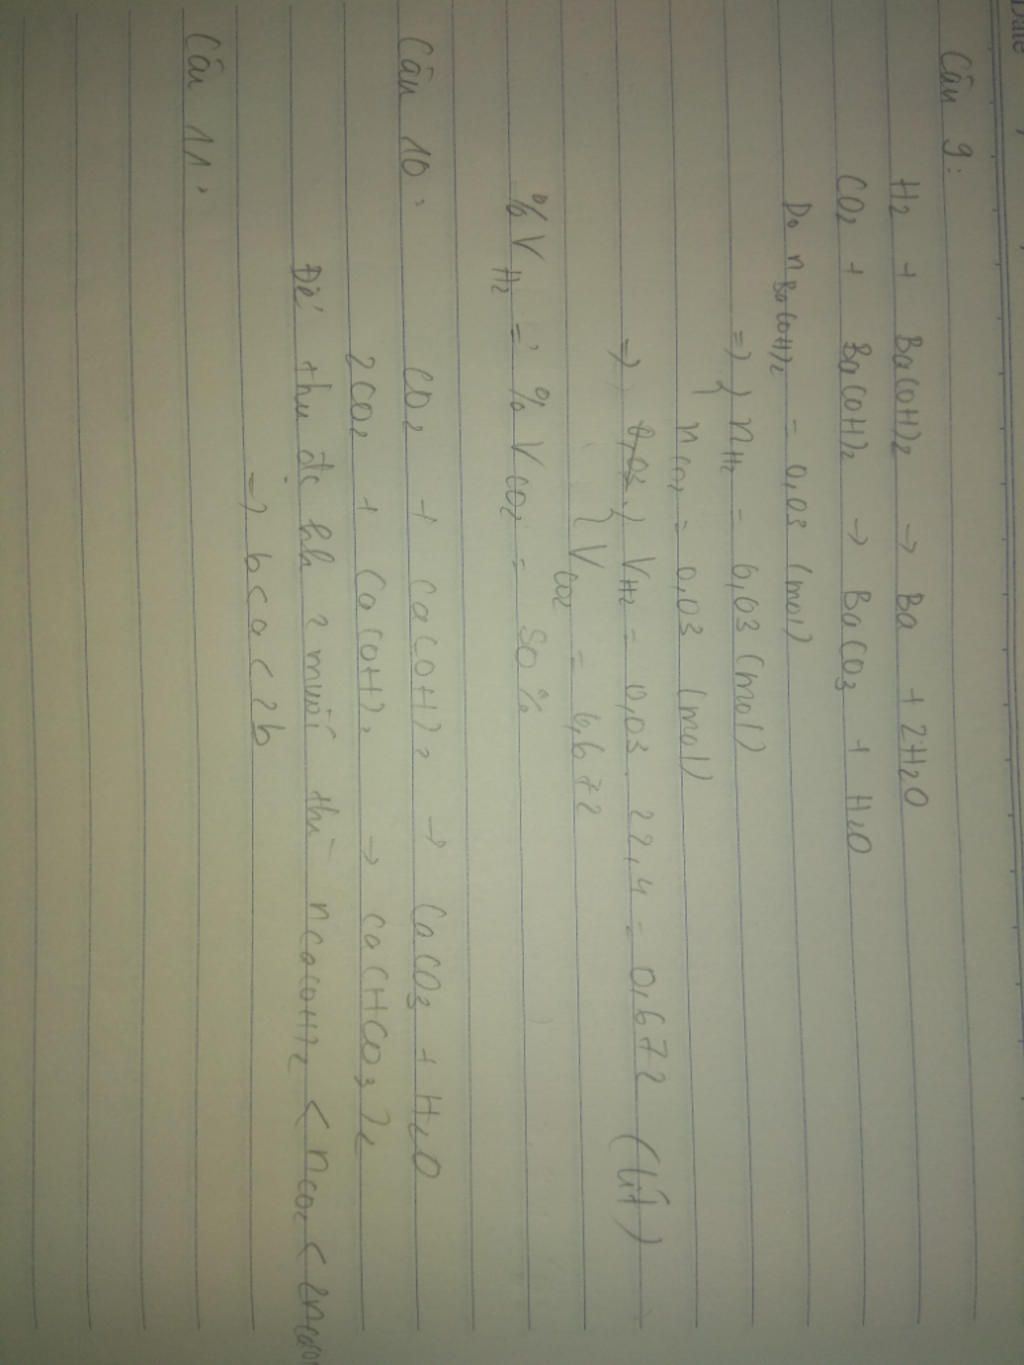 Date
Câu 9:
H₂ + Ba(OH)₂ → Ba + 2H₂O
CO₂ + Ba(OH)₂ → BaCO₃ + H₂O
Do n Ba(OH)₂ = 0,03 (mol)
=> { nH₂ = 0,03 (mol)
nCO₂ = 0,03 (mol)
=> { VH₂ = 0,03 . 22,4 = 0,672 (lít)
{ VCO₂ = 0,672
% V H₂ = % V CO₂ = 50%
Câu 10: CO₂ + Ca(OH)₂ → CaCO₃ + H₂O
2CO₂ + Ca(OH)₂ → Ca(HCO₃)₂
Để thu đc hh 2 muối thì nCa(OH)₂ < nCO₂ < 2nCa(OH)
=> b < a < 2b
Câu 11: